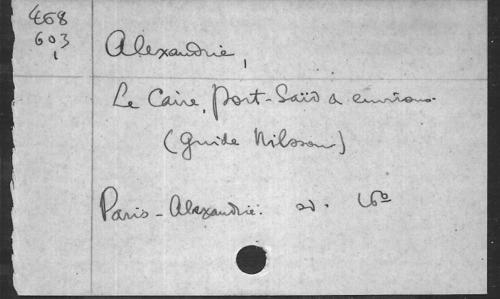 468
603
1
Alexandrie,
Le Caire, Port-Saïd & environs.
(Guide Nilsson)
Paris - Alexandrie. sd. 16º